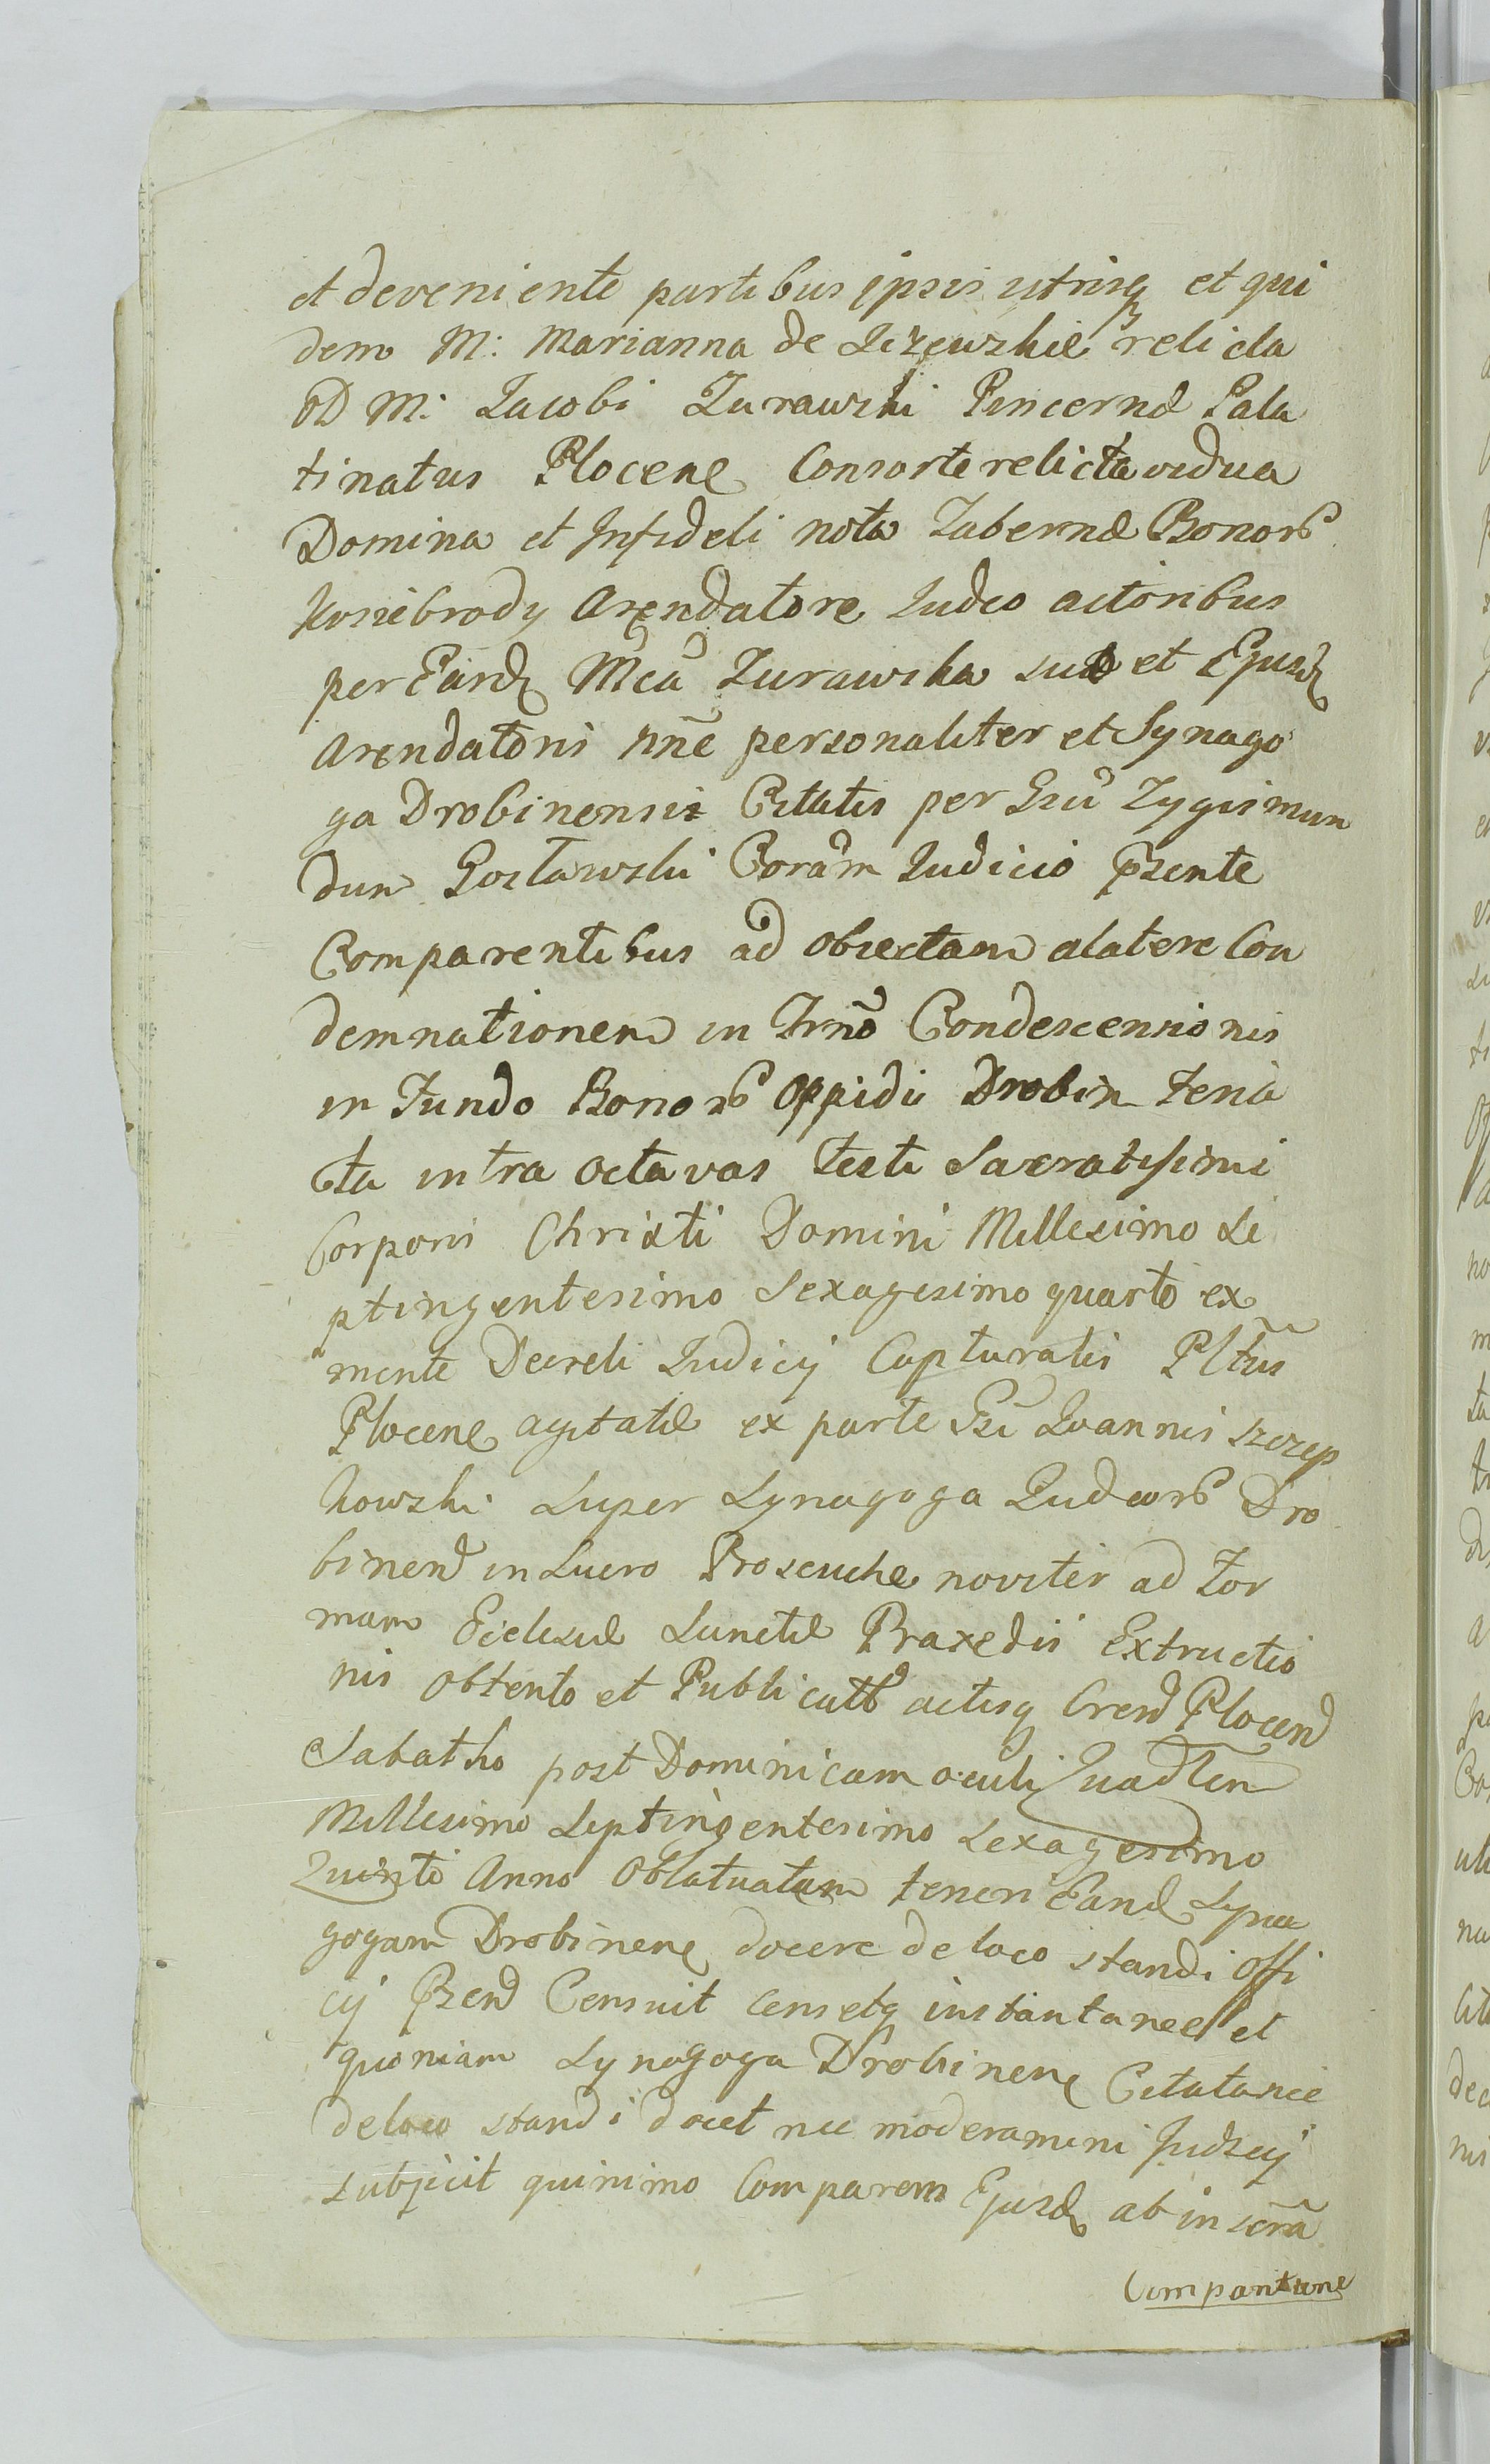 et deveniente partibus ipsis utrisq et qui
dem M: Marianna de Liżewskie relicta
OD M: Jacobi Żurawski Pincernæ Pala
tinatus Plocen Consorte relicta vidua
Domina et Infideli nota Tabernæ Bonor
Kosiebrody Arendatore Judeo actoribus
per Eand Mcă Żurawska suo et Ejusd
Arendatoris nne personaliter et Synago
ga Drobinensis Citatis per Gsu Zygismun
dum Gostawski Coram Judicio psente
Comparentibus ad obiectam alatere Con
demnationem in Trno Condescensionis
in Fundo Bonor Oppidi Drobin
cta intra octavas Festi Sacratissimi
Corporis Christi Domini Millesimo Se
ptingentesimo Sexagesimo quarto ex
mente Decreti Judicij Capturalis Pltus
Plocen agitatæ ex parte Gsi Joannis Szczep
kowski Super Synagoga Judeor Dro
binen in Suero Proseuche noviter ad For
mam Eclesiæ Sanctæ Praxedis Extructio
nis obtento et Publicato actisq Cren Plocen
Sabatho post Dominicam oculi Quadlen
Millesimo Septingentesimo Sexagesimo
Quinto Anno Oblatuatam teneri Eand Syna
gogam Drobinen docere de loco standi Offi
cij Psen Censuit Censetq instantanee et
quoniam Synagoga Drobinen Citata nec
de loco standi docet nec moderamini Judicij
subjicit quinimo Comparens Ejusd ab inscra